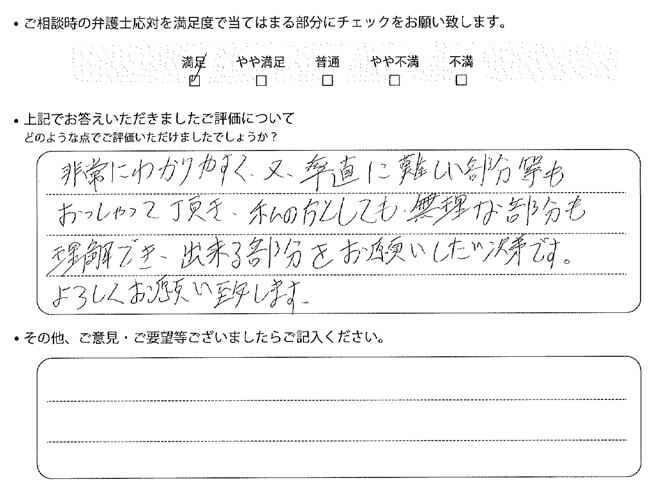 ・ご相談時の弁護士応対を満足度で当てはまる部分にチェックをお願い致します。
満足 やや満足 普通 やや不満 不満
・上記でお答えいただきましたご評価について
どのような点でご評価いただけましたでしょうか？
非常にわかりやすく、又、率直に難しい部分等も
おっしゃって頂き、私の方としても、無理な部分も
理解でき、出来る部分をお願いしたい次第です。
よろしくお願い致します。
・その他、ご意見・ご要望等ございましたらご記入ください。